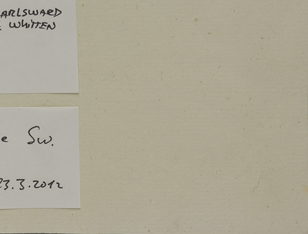 ARLSWARD
WHITTEN
e Sw.
23.3.2012